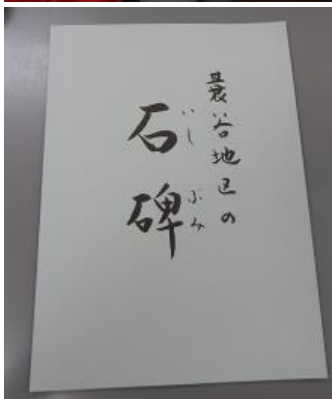 蓑谷地区の
石碑
いしぶみ